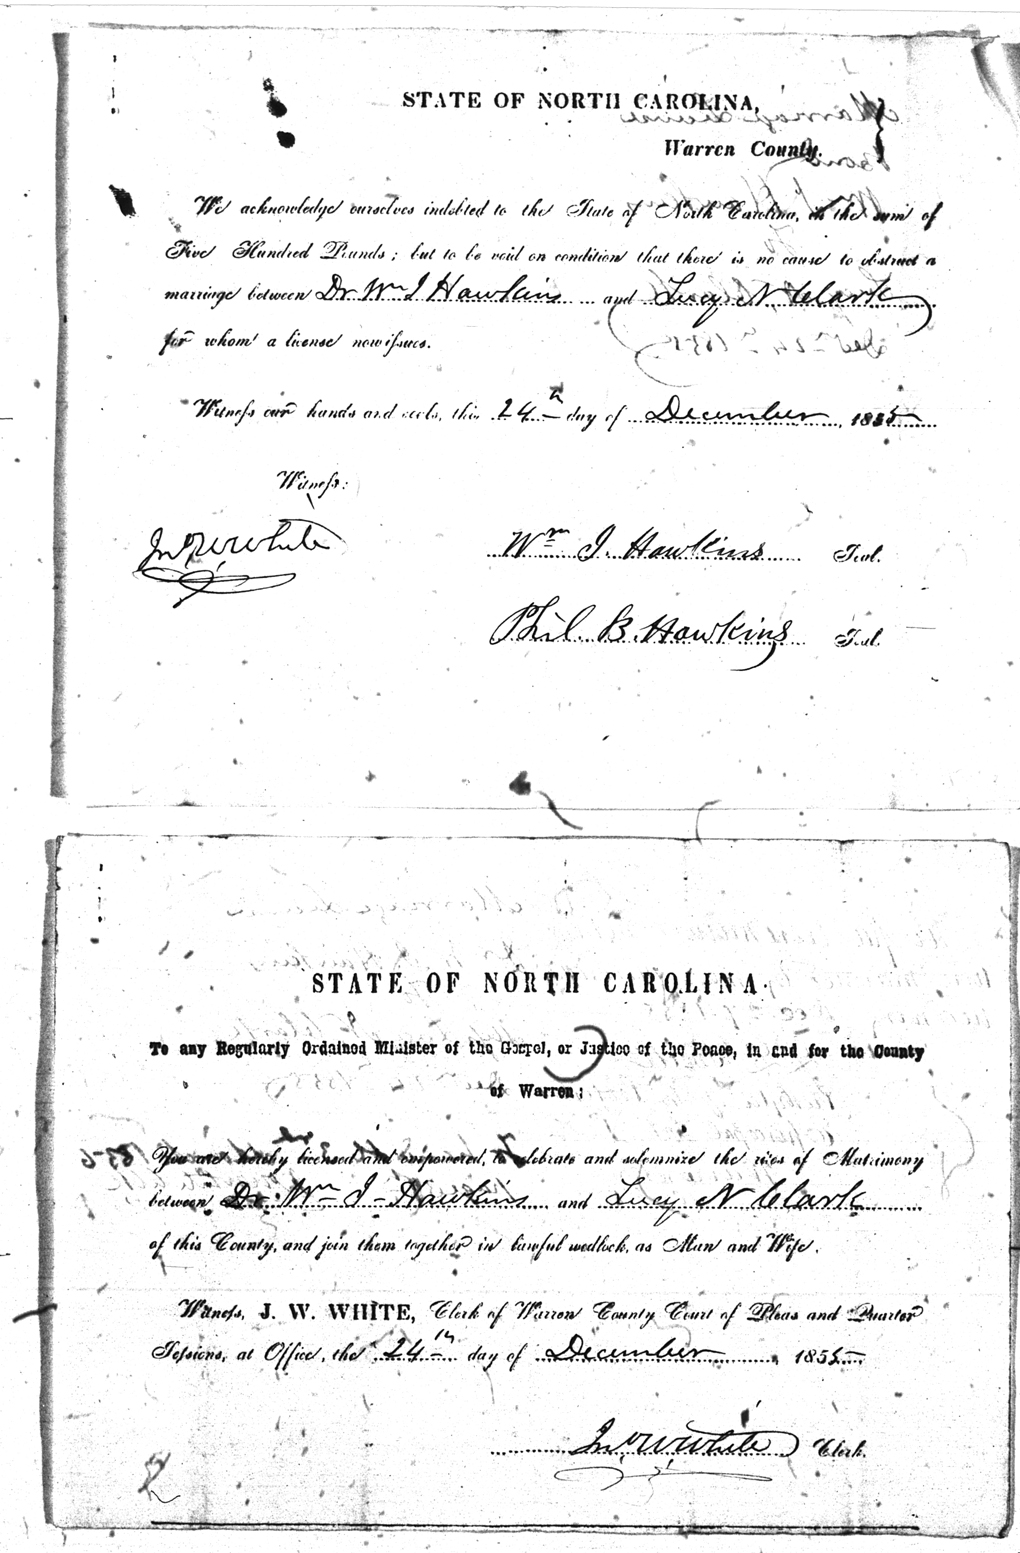 STATE OF NORTH CAROLINA,
Warren County.
We acknowledge ourselves indebted to the State of North Carolina, in the sum of
Five Hundred Pounds; but to be void on condition that there is no cause to obstruct a
marriage between Dr Wm J Hawkins and Lucy N Clark
for whom a license now issues.
Witness our hands and seals, this 24th day of December, 1855
Witness:
Jno W White
Wm J. Hawkins Seal.
Phil. B. Hawkins Seal.
STATE OF NORTH CAROLINA.
To any Regularly Ordained Minister of the Gospel, or Justice of the Peace, in and for the County
of Warren:
You are hereby licensed and empowered, to celebrate and solemnize the rites of Matrimony
between Dr. Wm J Hawkins and Lucy N Clark
of this County, and join them together in lawful wedlock, as Man and Wife.
Witness, J. W. WHITE, Clerk of Warren County Court of Pleas and Quarter
Sessions, at Office, the 24th day of December, 1855
Jno W White Clerk.